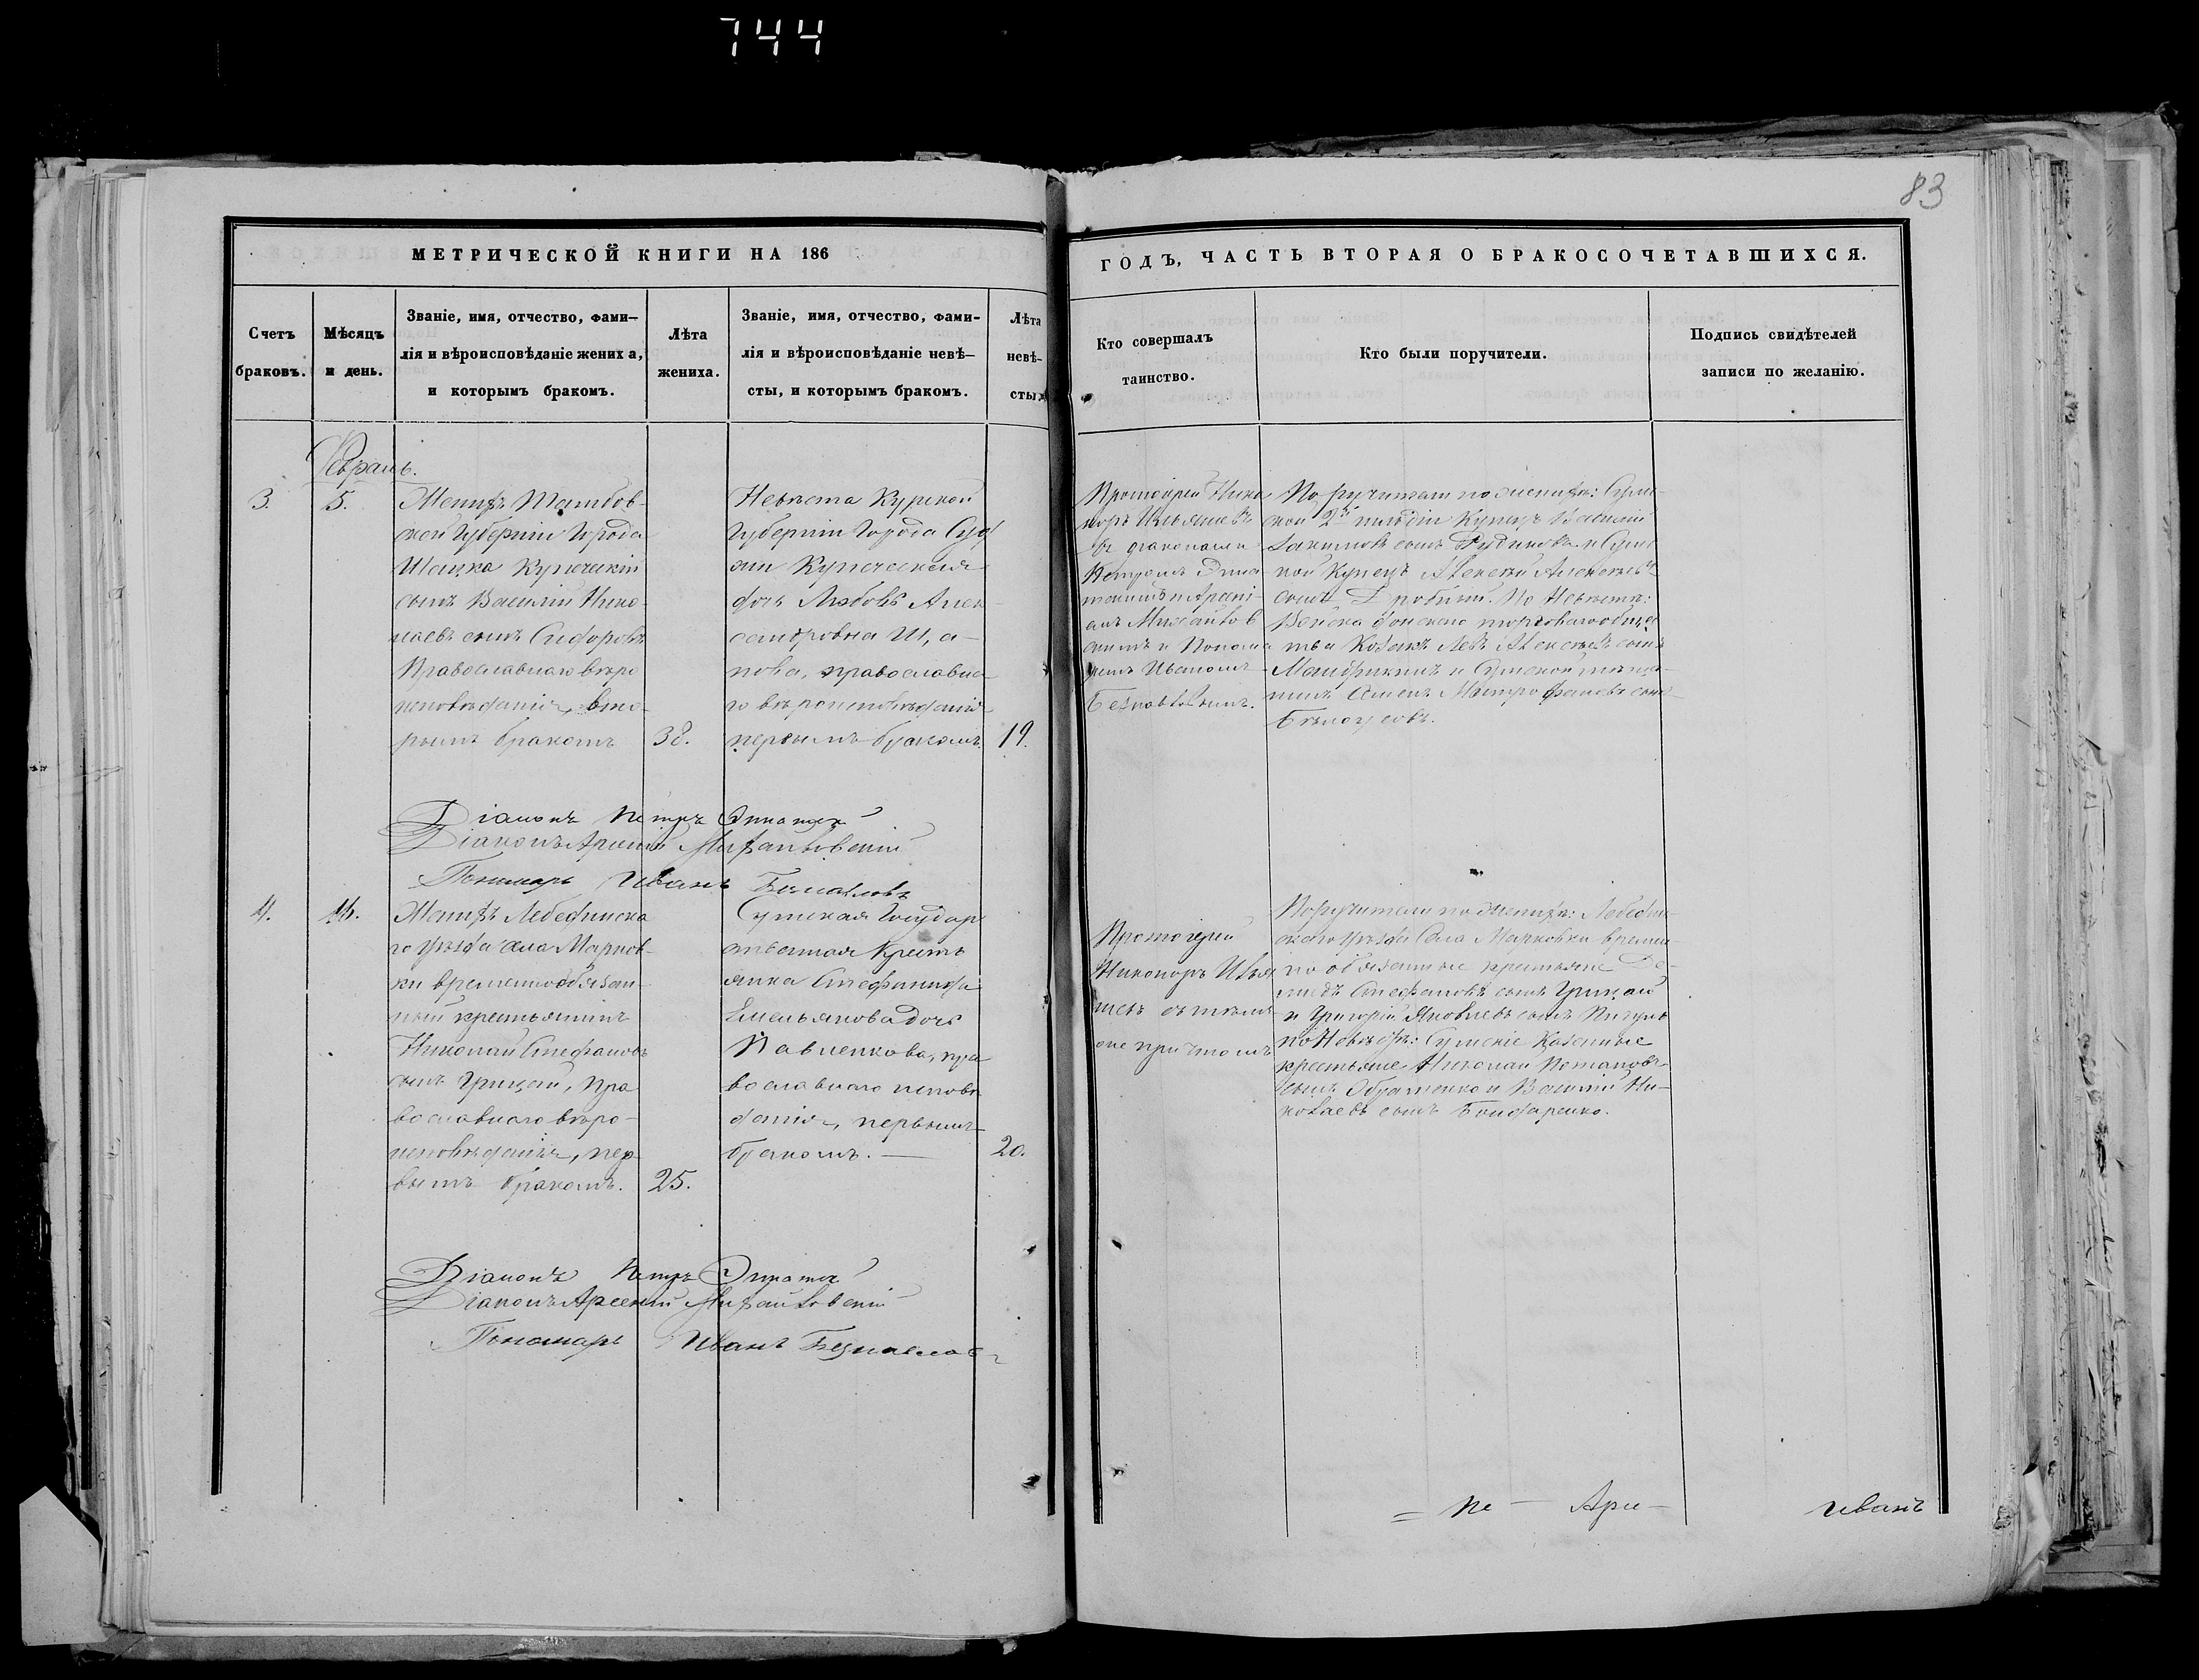 744
83
МЕТРИЧЕСКОЙ КНИГИ НА 186
ГОДЪ, ЧАСТЬ ВТОРАЯ О БРАКОСОЧЕТАВШИХСЯ.
Счетъ
браковъ.
Мѣсяцъ
и день.
Званіе, имя, отчество, фами—
лія и вѣроисповѣданіе жениха,
и которымъ бракомъ.
Лѣта
жениха.
Званіе, имя, отчество, фами-
лія и вѣроисповѣданіе невѣ—
сты, и которымъ бракомъ.
Лѣта
невѣ-
сты
Кто совершалъ
таинство.
Кто были поручители.
Подпись свидѣтелей
записи по желанію.
Февраль.
3.
5.
Женихъ Тамбов-
ской Губерніи Города
Шацка Купеческій
сынъ Василій Нико-
лаевъ сынъ Сидоровъ
Православнаго вѣро
исповѣданія, вто-
рымъ бракомъ
38.
Невѣста Курской
Губерніи Города Суд
жи Купеческая
дочь Любовь Алек-
сандровна
православна
го вѣроисповѣданія
первымъ бракомъ
19.
Протоіерей Ника
норъ Ильяшевъ
съ діаконами
Петромъ
и Арсені-
емъ Михайлов
скимъ и Понома
ремъ Иваномъ
Поручители по женихѣ: Сумс-
кой 2й гильдіи Купецъ Василій
сынъ и Сумс
кой Купецъ Алексѣй Алексѣевъ
сынъ По Невѣстѣ:
Войска Донскаго торговаго общес
тва Козакъ Левъ Алексѣевъ сынъ
и Сумской мѣща-
нинъ Митрофановъ сынъ
Бѣлоусовъ.
Діаконъ Петръ
Діаконъ Арсеній Михайловскій
Пономарь Иванъ
4.
Женихъ Лебединска
го уѣзда села Марков-
ки временнообязан-
ный крестьянинъ
Николай Стефановъ
сынъ Грицай, Пра
вославнаго вѣро-
исповѣданія, пер
вымъ бракомъ.
25.
Сумская Государ
ственная Кресть
янка Стефанида
Емельянова дочь
Павленкова, пра
вославнаго исповѣ
данія, первымъ
бракомъ. —
20.
Протоіерей
Никаноръ Илья
шевъ съ тѣмъ
же причтомъ
Поручители по женихѣ: Лебедин-
скаго уѣзда Села Марковки времен-
но обязанные крестьяне
Стефановъ сынъ Грицай
и Григорій Яковлевъ сынъ
по Невѣстѣ: Сумскіе Казенные
крестьяне Николай Потаповъ
сынъ и Василій Ни-
колаевъ сынъ Бондаренко.
Діаконъ Петръ
Діаконъ Арсеній Михайловскій
Пономарь Иванъ
= Пе — Арсе — Иванъ